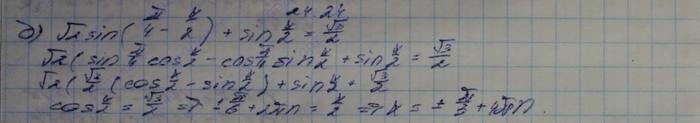 24.24
б) √2 sin(π/4 - x/2) + sin x/2 = √3/2
√2(sin π/4 cos x/2 - cos π/4 sin x/2 + sin x/2 = √3/2
√2(√2/2 (cos x/2 - sin x/2) + sin x/2 = √3/2
cos x/2 = √3/2 => ± π/6 + 2πn = x/2 => x = ± π/3 + 4πn.